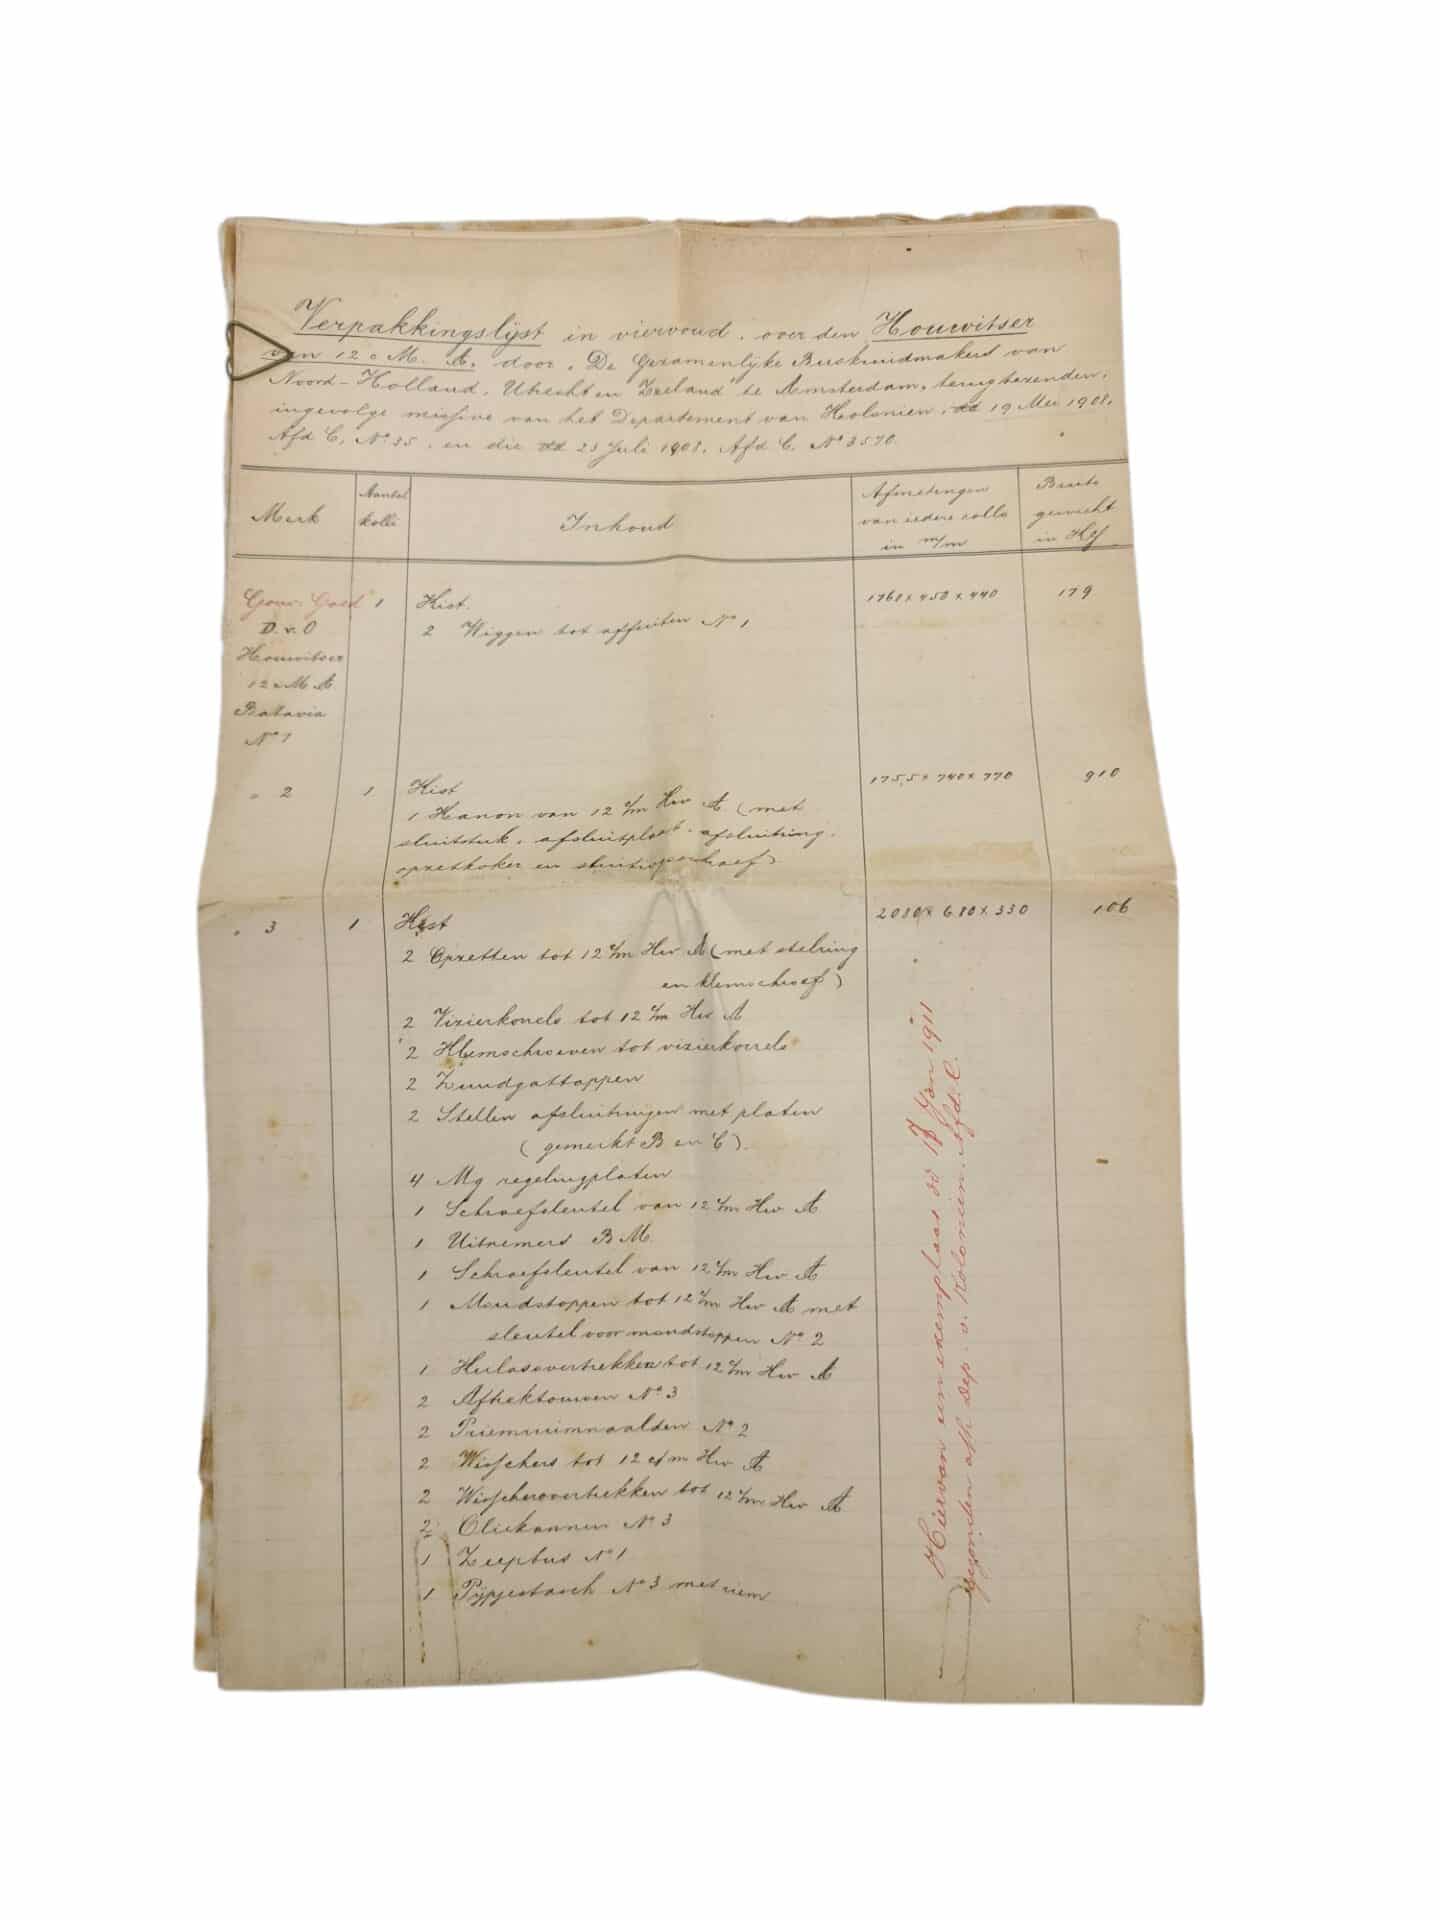 Verpakkingslijst in viervoud over den Houwitser
van 12 c.M. A. door "De Gezamenlijke Buskruidmakers van
Noord-Holland, Utrecht en Zeeland" te Amsterdam, terug te zenden,
ingevolge missive van het Departement van Kolonien dd 19 Mei 1908,
Afd C, No 35, en die dd 23 Juli 1908, Afd C. No 3570.
Merk
Aantal
kolli
Inhoud
Afmetingen
van iedere collo
in m/m
Bruto
gewicht
in Kg
Gouv. Goed 1 Kist. 1760 x 450 x 440 179
D. v. O 2 Wiggen tot affuiten No 1
Houwitser
12 c.M. A
Batavia
No 1
" 2 1 Kist 1755 x 740 x 770 910
1 Kanon van 12 c/m Hw A (met
sluitstuk, afsluitplaat, afsluitring,
opzetkoker en
" 3 1 Kist 2080 x 680 x 330 106
2 Opzetten tot 12 c/m Hw A (met stelring
en klemschroef)
2 Vizierkorrels tot 12 c/m Hw A
2 Klemschroeven tot vizierkorrels
2 Zundgattappen
2 Stellen afsluitringen met platen
(gemerkt B en C).
4 Mg regelingplaten
1 Schroefsleutel van 12 c/m Hw A
1 Uitnemers B M.
1 Schroefsleutel van 12 c/m Hw A
1 Mondstoppen tot 12 c/m Hw A met
sleutel voor mondstoppen No 2
1 Kulasovertrekken tot 12 c/m Hw A
2 Aftrektouwen No 3
2 Priemruimnaalden No 2
2 Wisschers tot 12 c/m Hw A
2 Wisschersovertrekken tot 12 c/m Hw A
2 Oliekannen No 3
1 Zeepbus No 1
1 Pijpjestasch No 3 met riem
Hiervan een exemplaar dd 17 Jan 1911
gezonden a/h Dep. v. Kolonien Afd. C.